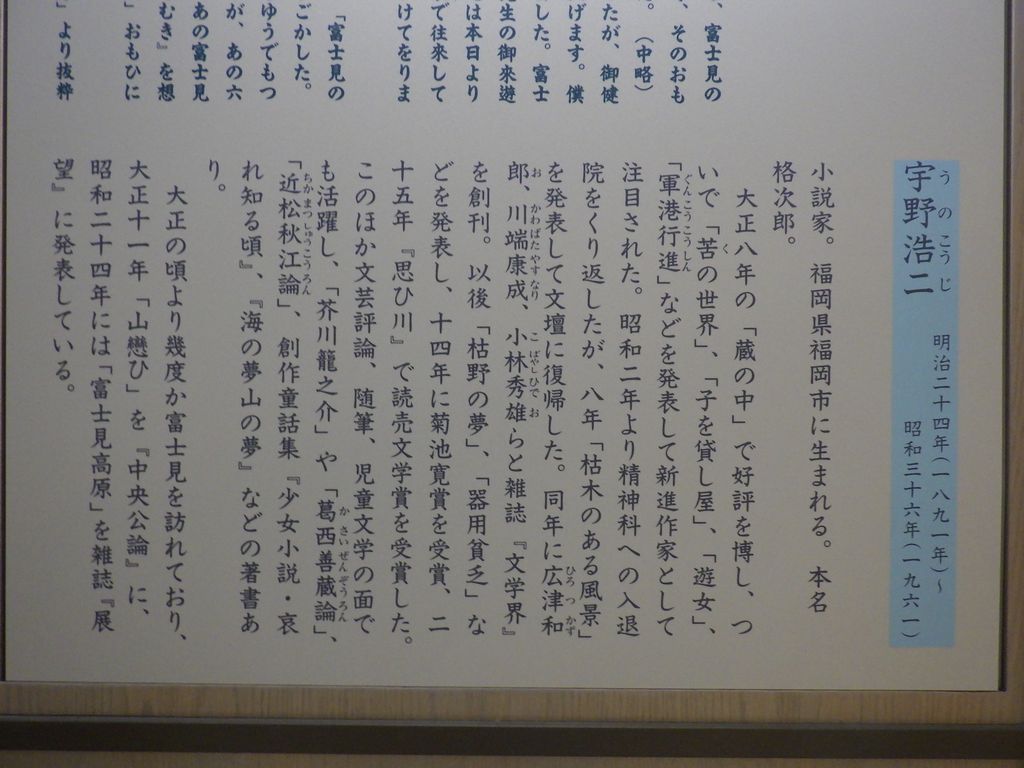 、富士見の
、そのおも
。（中略）
たが、御健
げます。僕
した。富士
先生の御來遊
は本日より
で往來して
けてをりま
「富士見の
ごかした。
ゆうでもつ
が、あの六
あの富士見
むき』を想
」おもひに
」より抜粋
宇野浩二
うのこうじ
明治二十四年（一八九一年）～
昭和三十六年（一九六一）
小説家。福岡県福岡市に生まれる。本名
格次郎。
大正八年の「蔵の中」で好評を博し、つ
いで「苦の世界」、「子を貸し屋」、「遊女」、
「軍港行進」などを発表して新進作家として
注目された。昭和二年より精神科への入退
院をくり返したが、八年「枯木のある風景」
を発表して文壇に復帰した。同年に広津和
郎、川端康成、小林秀雄らと雑誌『文学界』
を創刊。以後「枯野の夢」、「器用貧乏」な
どを発表し、十四年に菊池寛賞を受賞、二
十五年『思ひ川』で読売文学賞を受賞した。
このほか文芸評論、随筆、児童文学の面で
も活躍し、「芥川龍之介」や「葛西善蔵論」、
「近松秋江論」、創作童話集『少女小説・哀
れ知る頃』、『海の夢山の夢』などの著書あ
り。
大正の頃より幾度か富士見を訪れており、
大正十一年「山戀ひ」を『中央公論』に、
昭和二十四年には「富士見高原」を雑誌『展
望』に発表している。